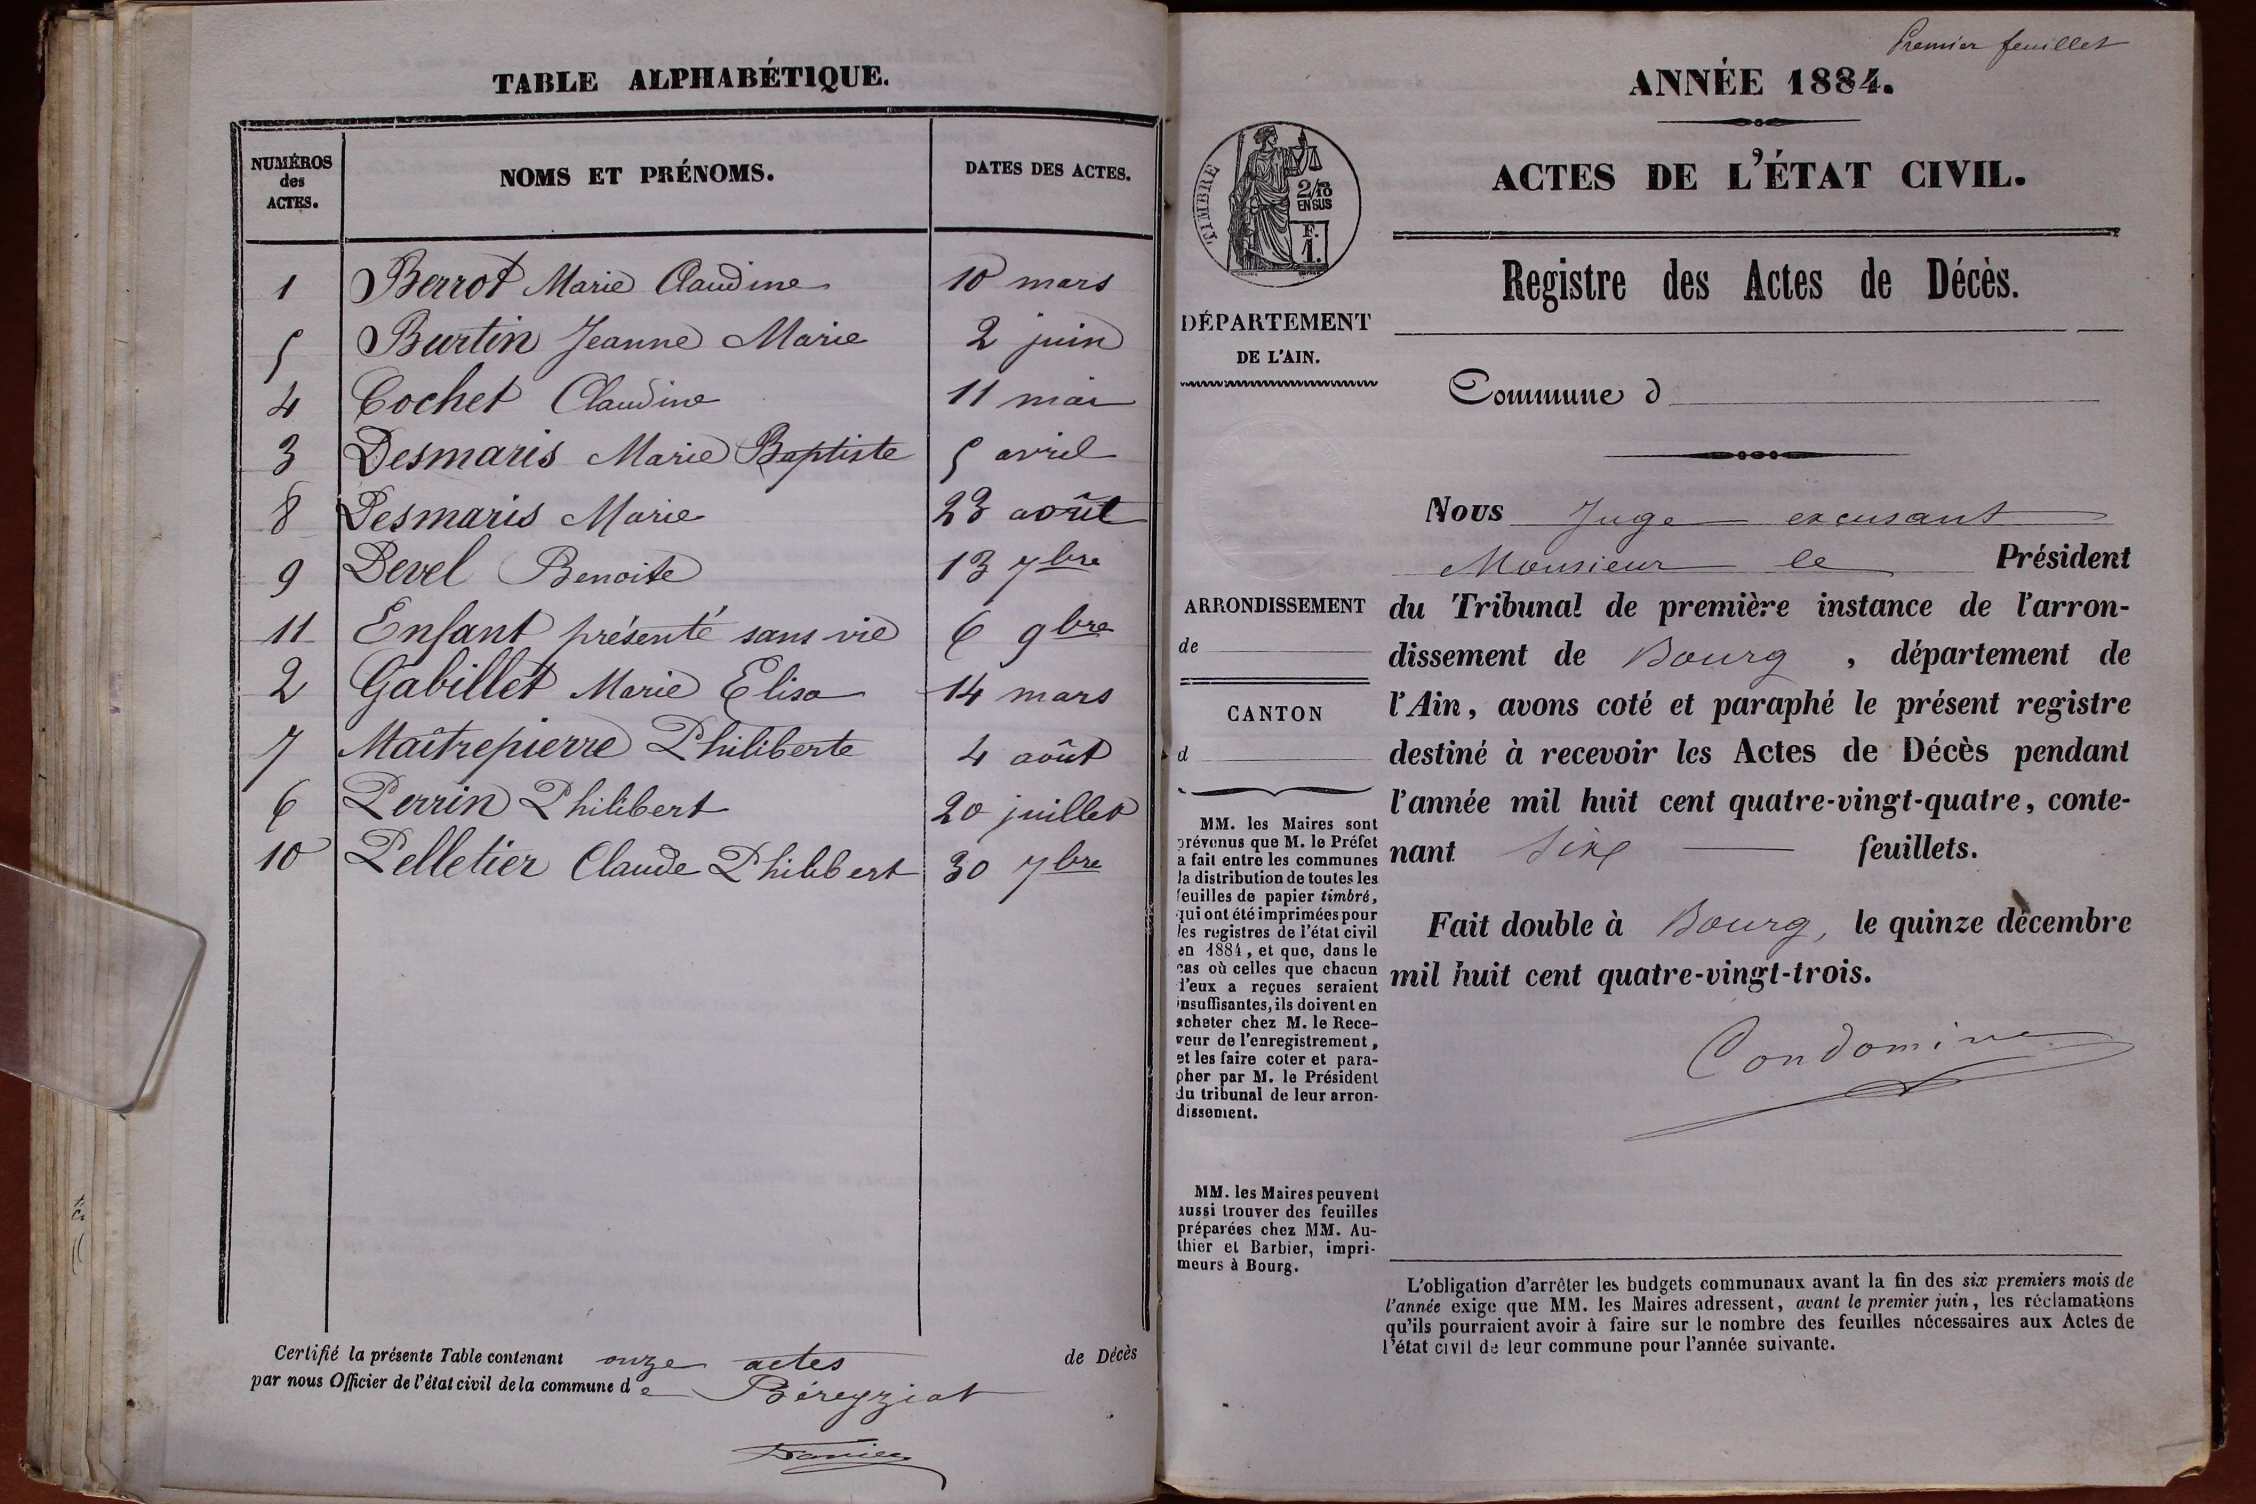 TABLE ALPHABÉTIQUE.
NUMÉROS
des
ACTES.
NOMS ET PRÉNOMS.
DATES DES ACTES.
1 Berrot Marie Claudine 10 mars
5 Burtin Jeanne Marie 2 juin
4 Cochet Claudine 11 mai
3 Desmaris Marie Baptiste 5 avril
8 Desmaris Marie 23 août
9 Devel Benoite 13 7bre
11 Enfant présenté sans vie 6 9bre
2 Gabillet Marie Elisa 14 mars
7 Maîtrepierre Philiberte 4 août
6 Perrin Philibert 20 juillet
10 Pelletier Claude Philibert 30 7bre
Certifié la présente Table contenant onze actes de Décès
par nous Officier de l'état civil de la commune de Béreyziat
Premier feuillet
ANNÉE 1884.
ACTES DE L'ÉTAT CIVIL.
TIMBRE
2/10
EN SUS
F.
1.
Registre des Actes de Décès.
DÉPARTEMENT
DE L'AIN.
Commune d
Nous Juge excusant
Monsieur le Président
ARRONDISSEMENT
de
CANTON
d
du Tribunal de première instance de l'arron-
dissement de Bourg, département de
l'Ain, avons coté et paraphé le présent registre
destiné à recevoir les Actes de Décès pendant
l'année mil huit cent quatre-vingt-quatre, conte-
nant six feuillets.
Fait double à Bourg, le quinze décembre
mil huit cent quatre-vingt-trois.
Condomine
MM. les Maires sont
prévenus que M. le Préfet
a fait entre les communes
la distribution de toutes les
feuilles de papier timbré,
qui ont été imprimées pour
les registres de l'état civil
en 1884, et que, dans le
cas où celles que chacun
d'eux a reçues seraient
insuffisantes, ils doivent en
acheter chez M. le Rece-
veur de l'enregistrement,
et les faire coter et para-
pher par M. le Président
du tribunal de leur arron-
dissement.
MM. les Maires peuvent
aussi trouver des feuilles
préparées chez MM. Au-
thier et Barbier, impri-
meurs à Bourg.
L'obligation d'arrêter les budgets communaux avant la fin des six premiers mois de
l'année exige que MM. les Maires adressent, avant le premier juin, les réclamations
qu'ils pourraient avoir à faire sur le nombre des feuilles nécessaires aux Actes de
l'état civil de leur commune pour l'année suivante.